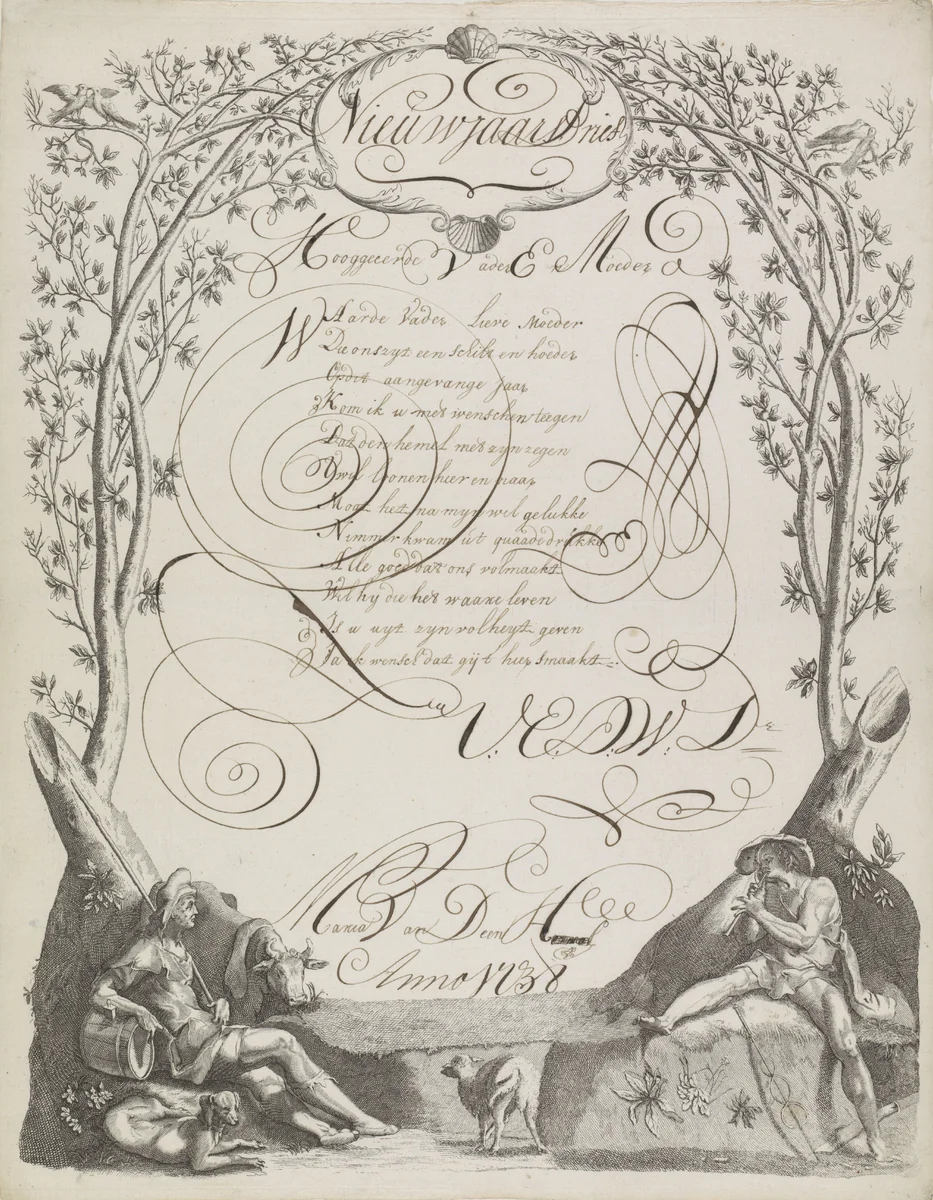 NieuwjaarsBrief
Hooggeeerde Vader E Moeder
WAarde Vader Lieve Moeder
Die ons zyt een schilt en hoeder
Opdit aangevange Jaar
Kom ik u met wenschen teegen
Dat den hemel met zyn zegen
U wil loonen hier en naar
Moet het na myn wil gelukke
Nimmer kwam u't quaade drukke
Alle goed dat ons volmaakt
Wil hy die het waare leven
Is u uyt zyn volheyt geven
Ja ik wensch dat gij't hier smaakt
U.E.D.W. Dr
Maria Van Deen
Anno 1738